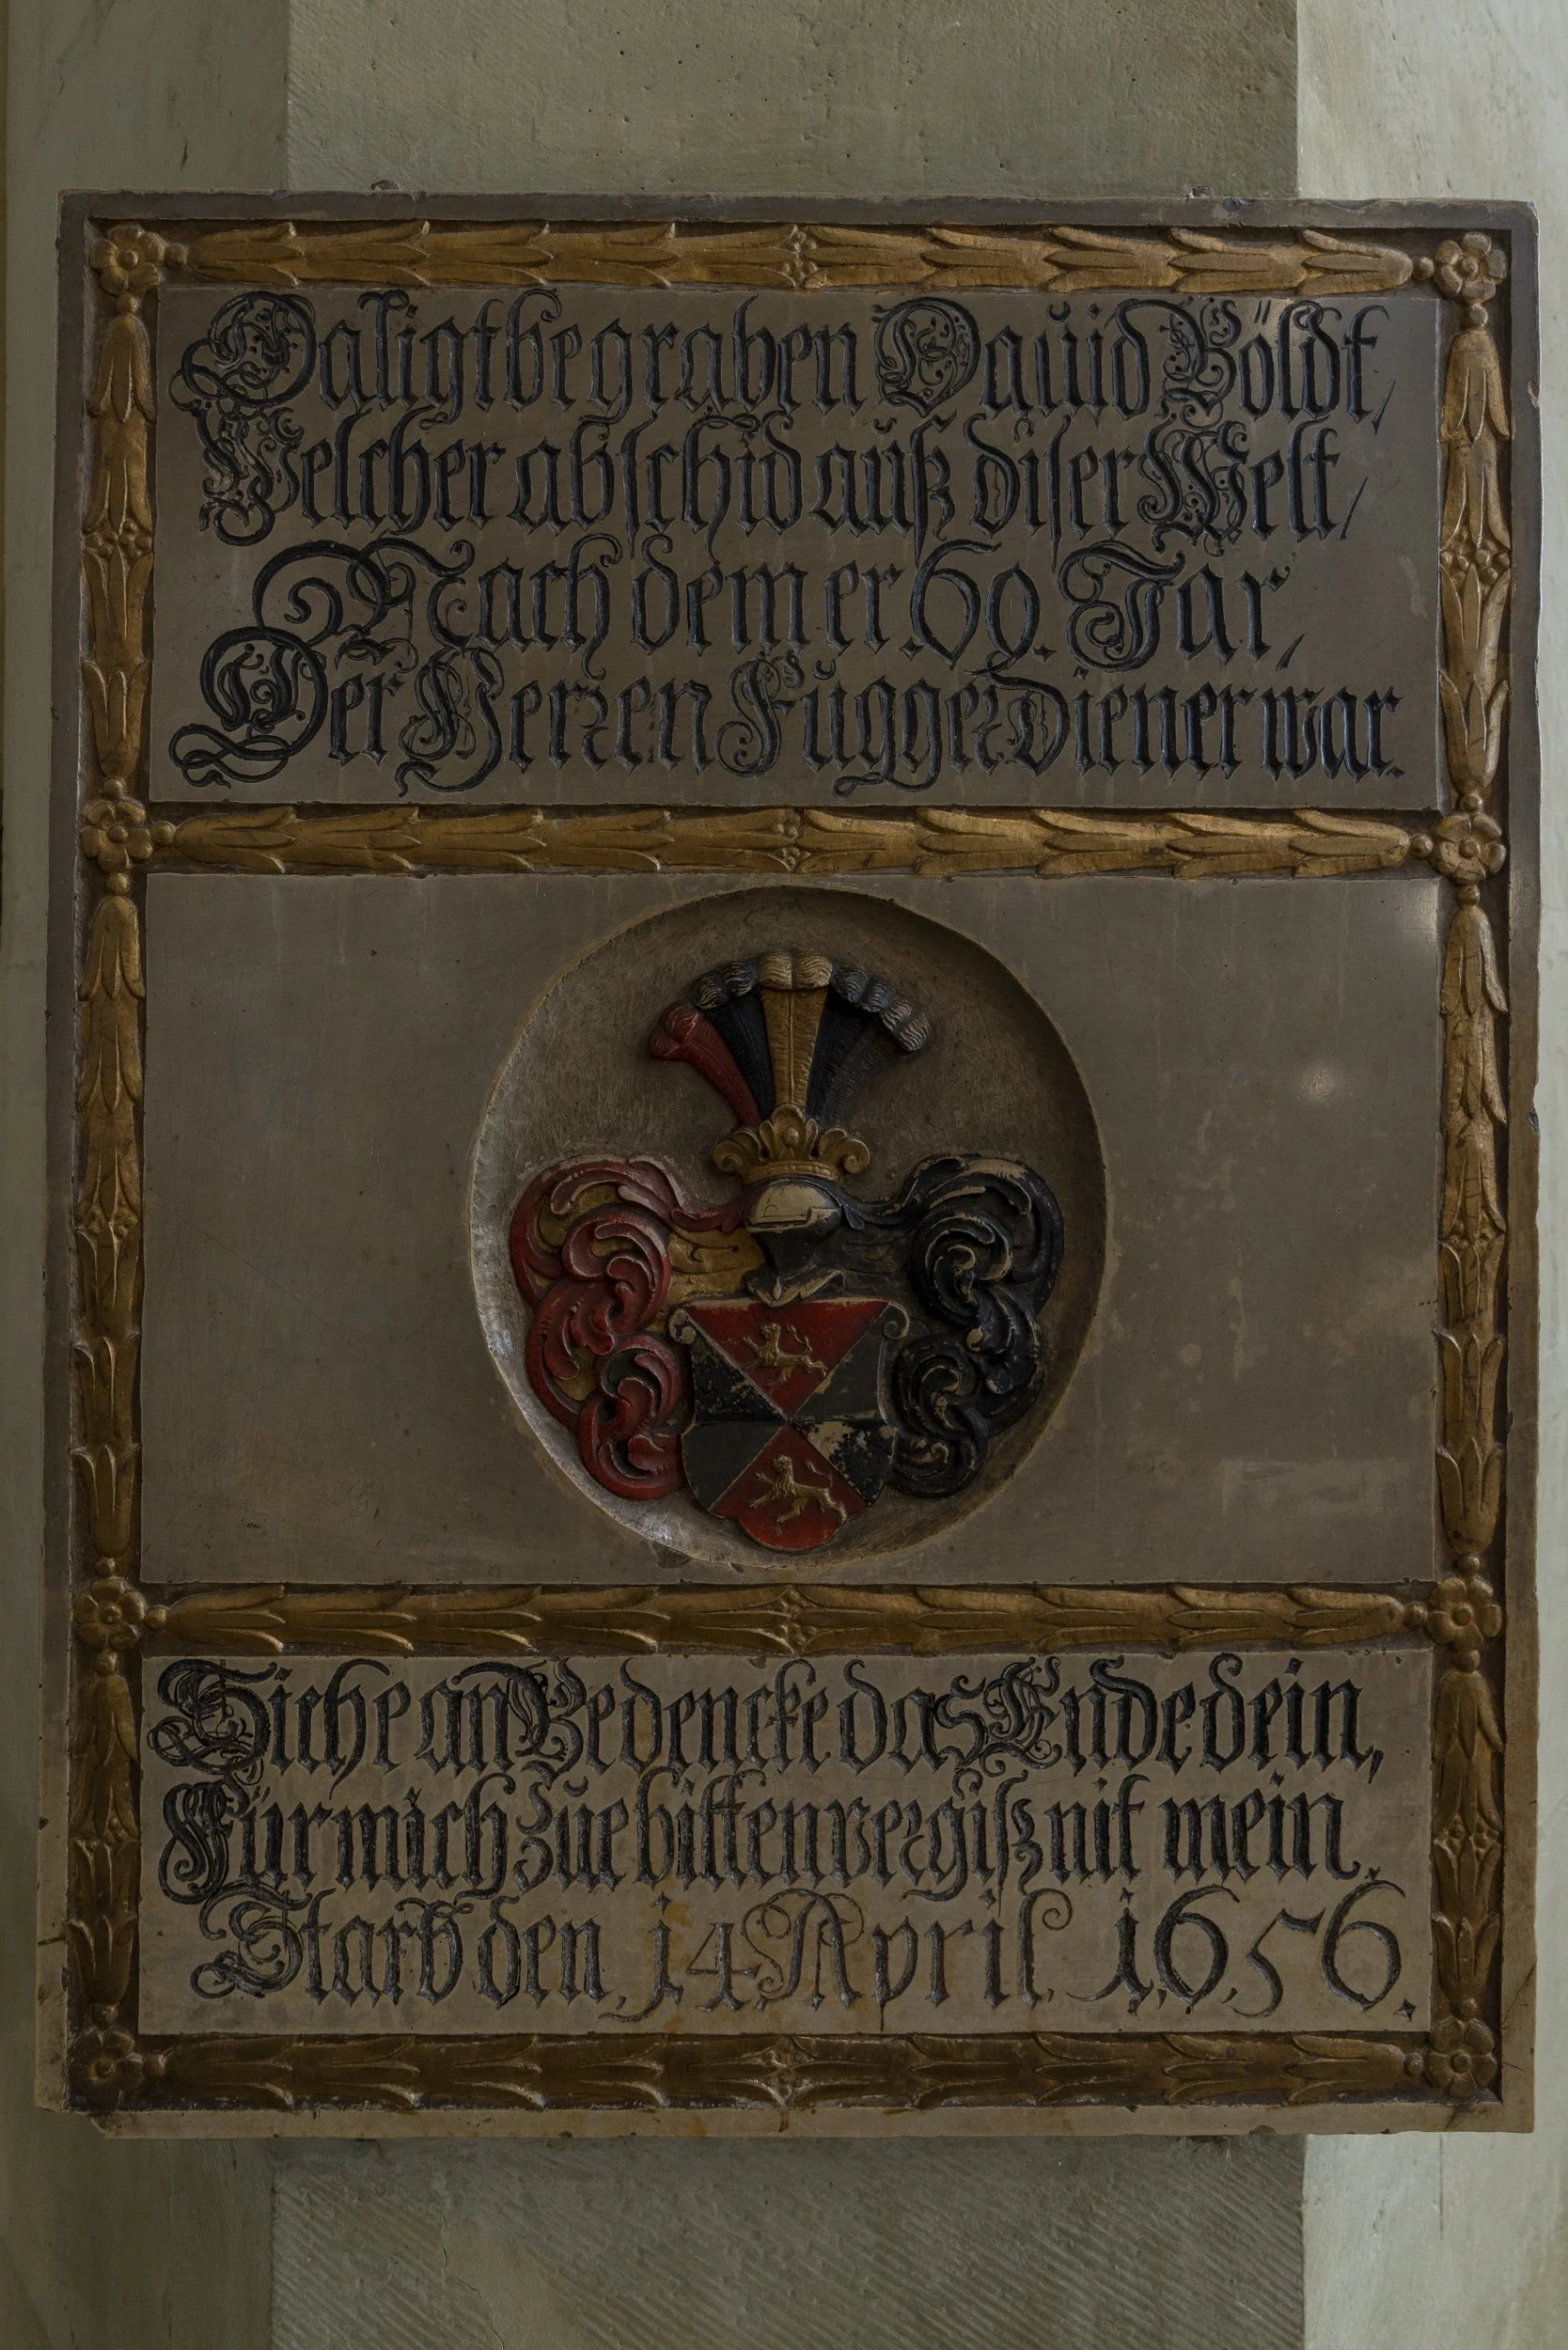 Da ligt begraben Dauid Böldt,
Welcher abschid auß diser Welt,
Nach dem er .69. Jar,
Der Herren Fugger Diener war.
Siehe an Bedencke das Ende dein,
Für mich zue bitten vergiß nit mein.
Starb den 14 April 1656.